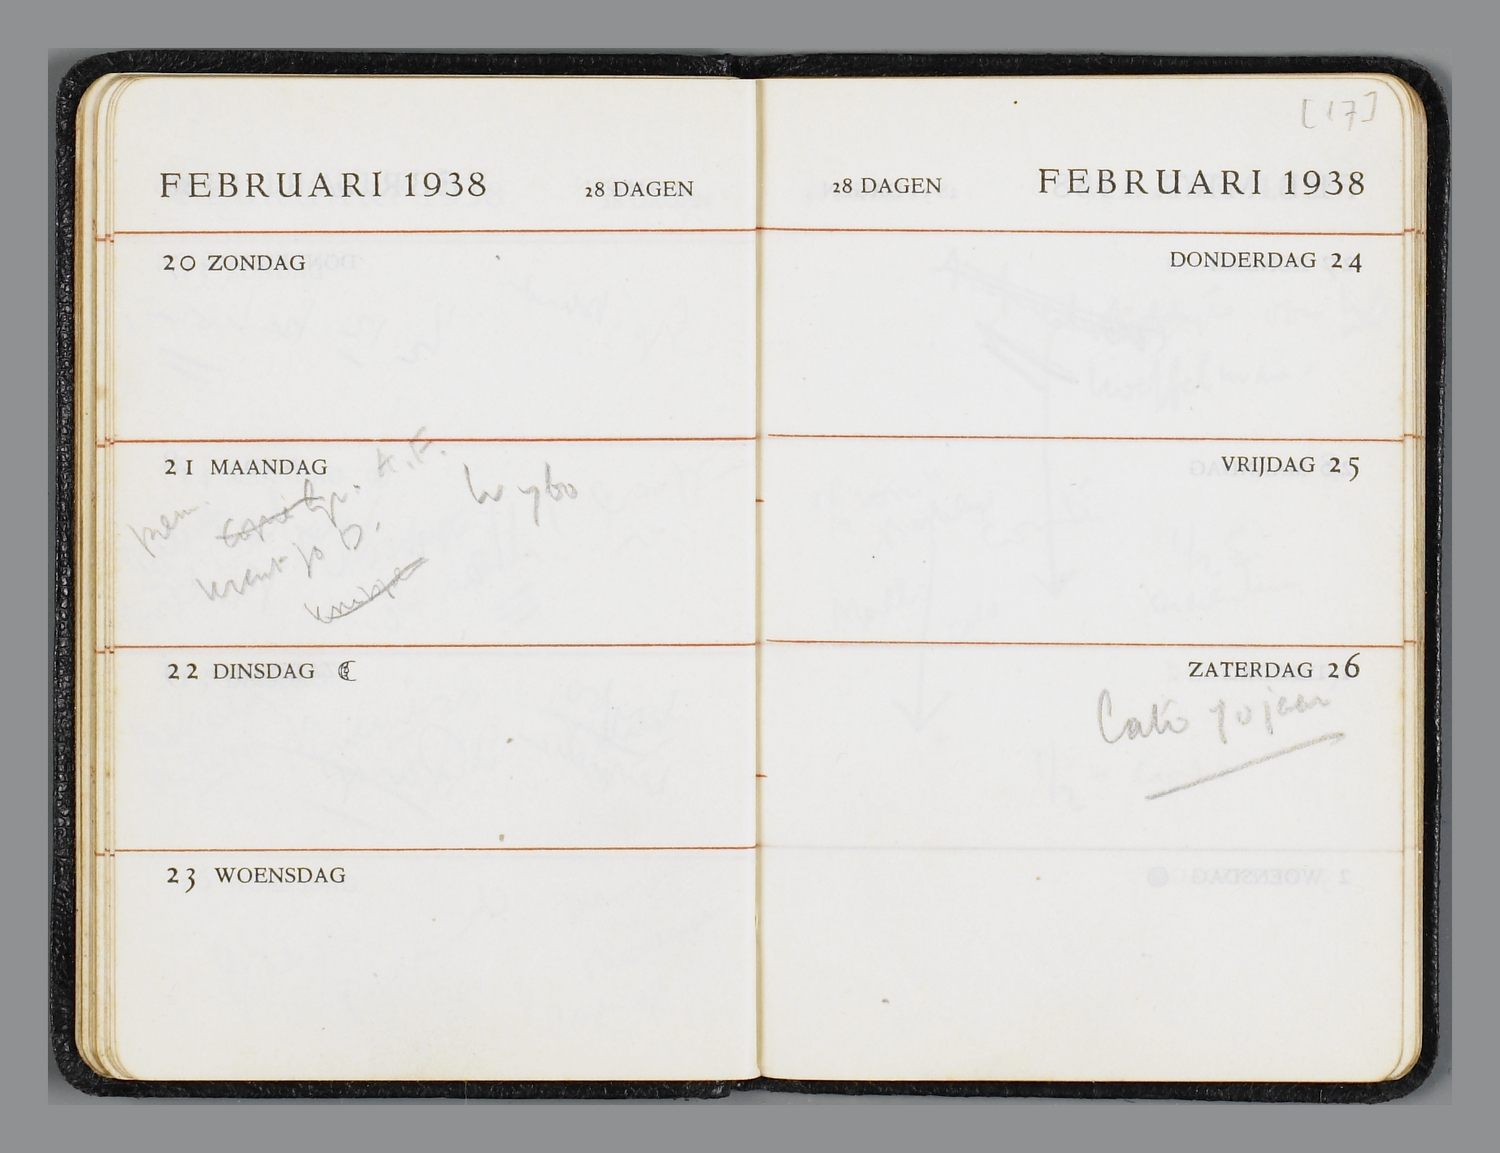 FEBRUARI 1938 28 DAGEN
20 ZONDAG
21 MAANDAG
A.F.
Wybo
22 DINSDAG
23 WOENSDAG
[17]
28 DAGEN FEBRUARI 1938
DONDERDAG 24
VRIJDAG 25
ZATERDAG 26
Cato 70 jaar